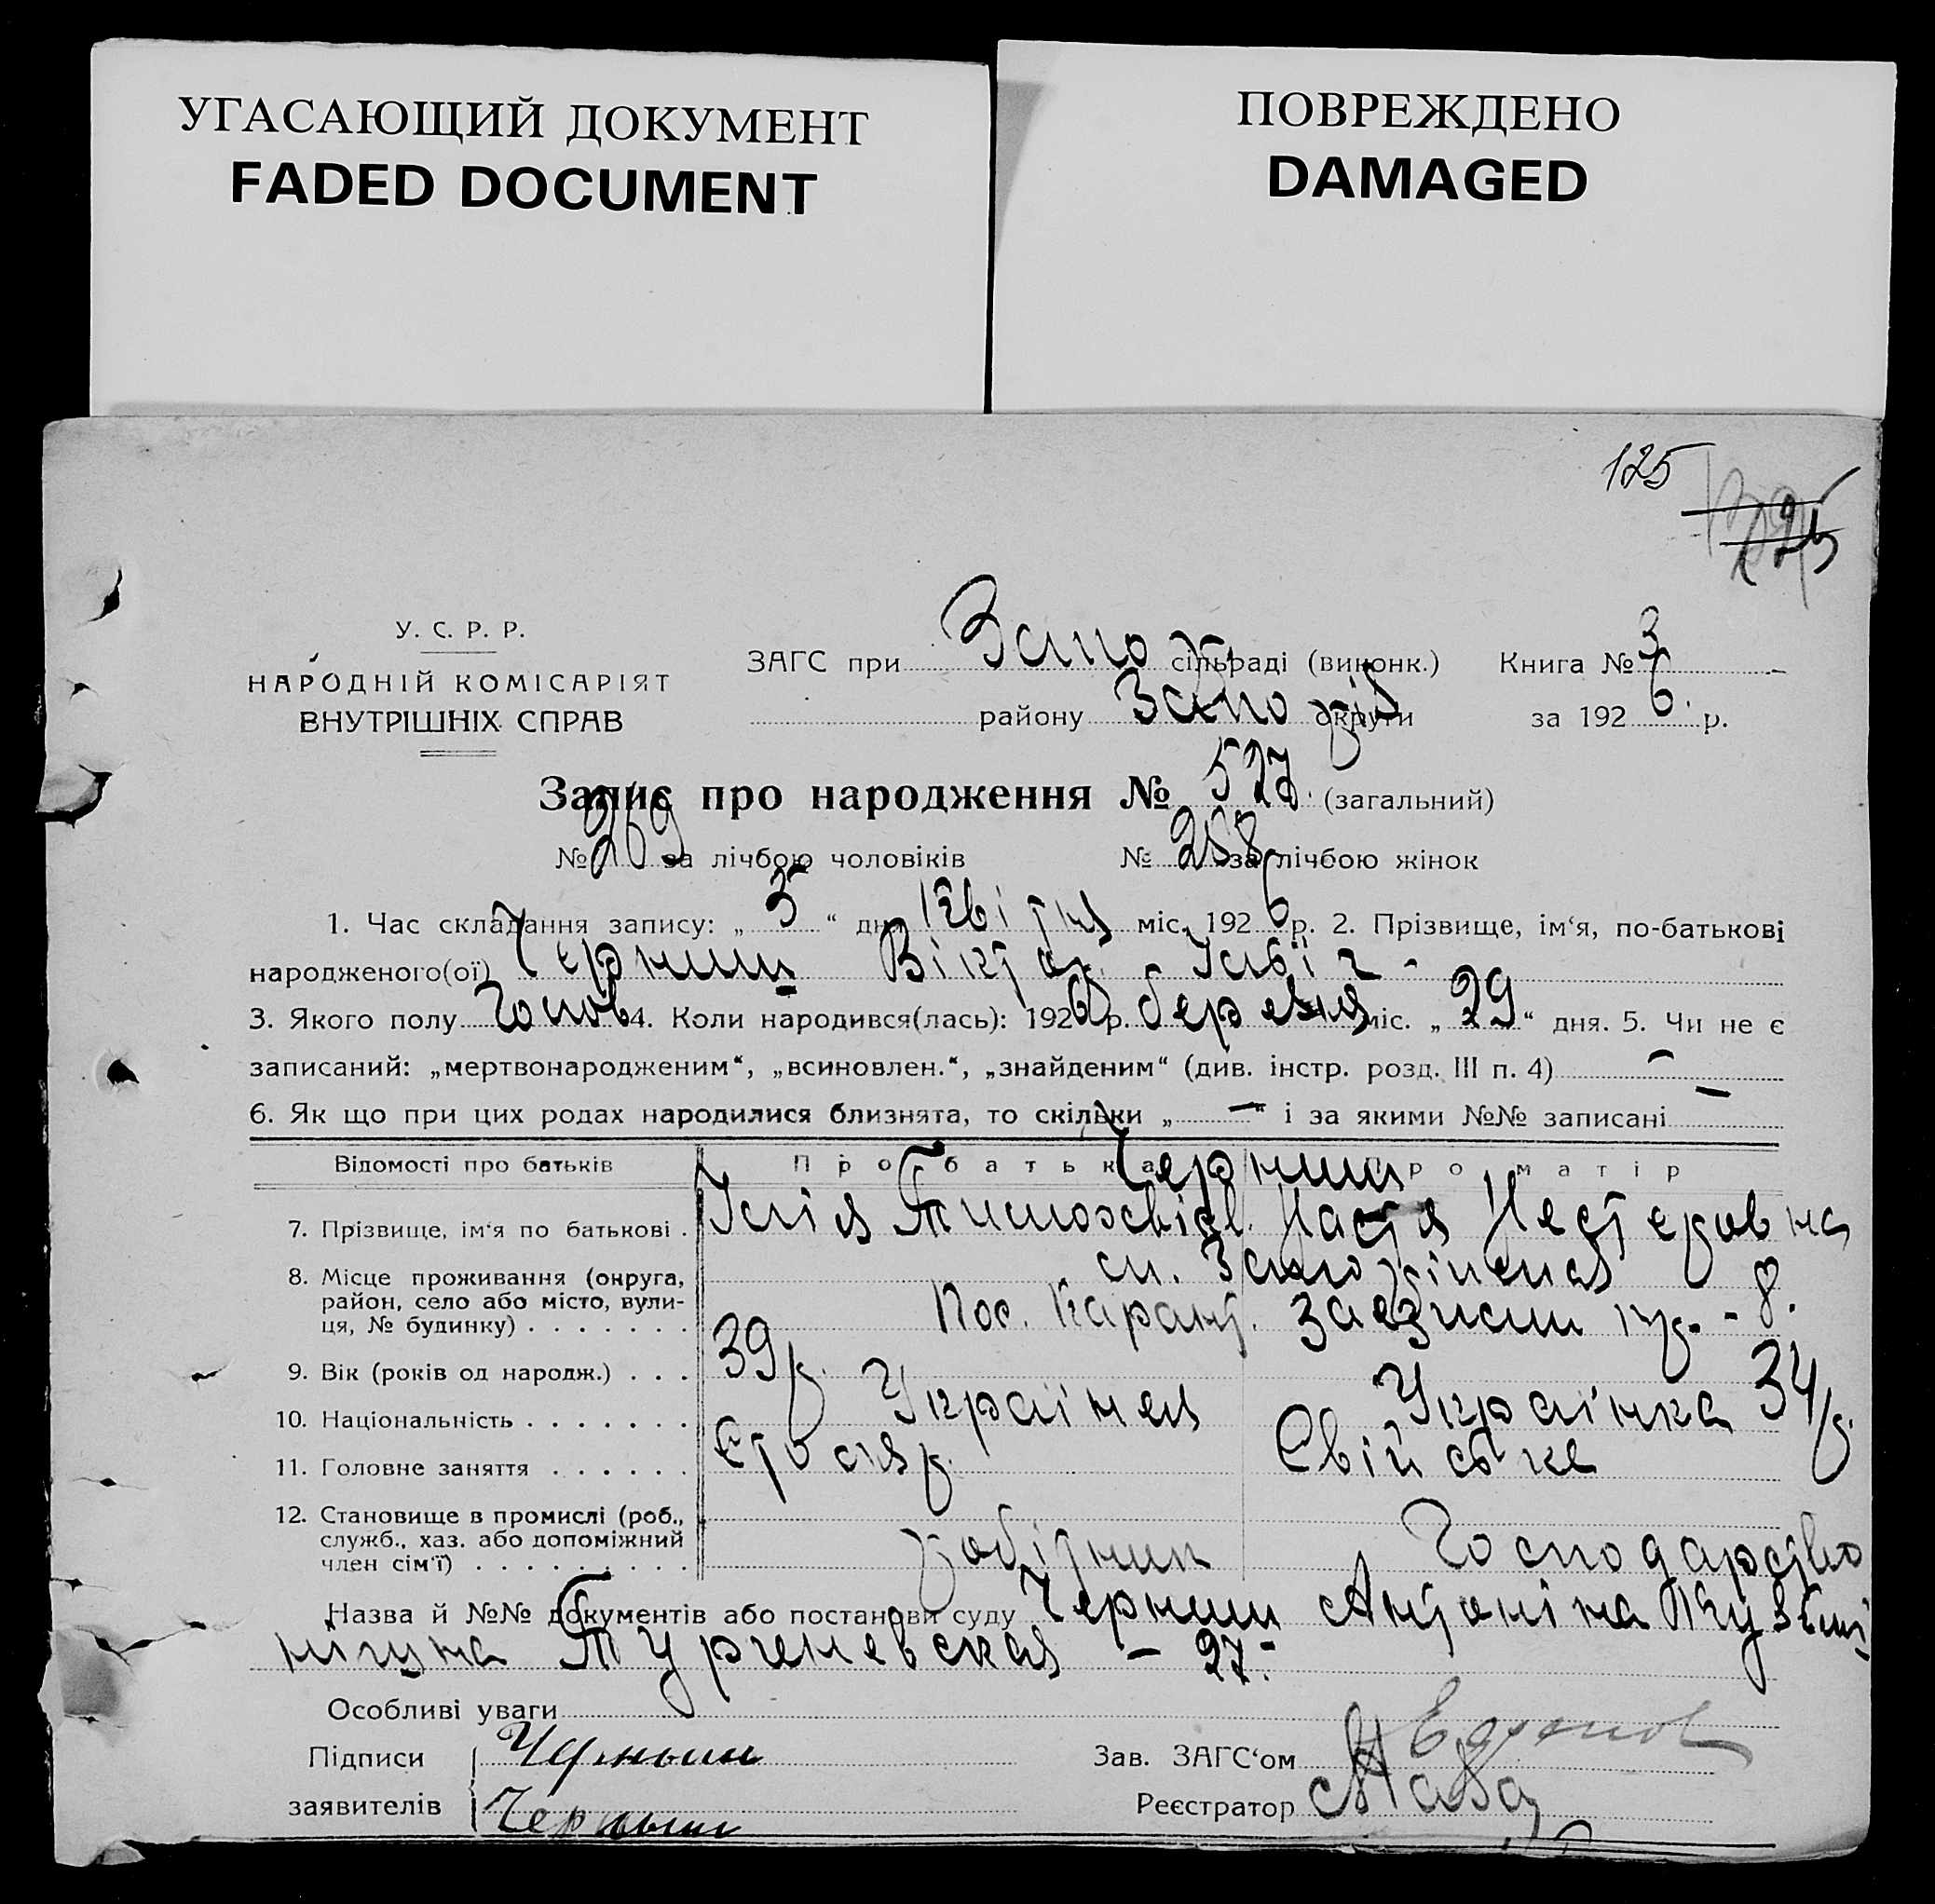 УГАСАЮЩИЙ ДОКУМЕНТ
FADED DOCUMENT
ПОВРЕЖДЕНО
DAMAGED
125
У. С. Р. Р.
НАРОДНІЙ КОМІСАРІЯТ
ВНУТРІШНІХ СПРАВ
ЗАГС при Запож сільраді (виконк.) Книга № 3
району Запоріз округи за 1926 р.
Запис про народження № 527. (загальний)
№ 269 за лічбою чоловіків № 258 за лічбою жінок
1. Час складання запису: „ 5 “ дня Квітня міс. 1926 р. 2. Прізвище, ім‘я, по-батькові
народженого(ої) Черниш Віктор Ілліч -
3. Якого полу Чолов 4. Коли народився(лась): 1926 р. березня міс. „ 29 “ дня. 5. Чи не є
записаний: „мертвонародженим“, „всиновлен.“, „знайденим“ (див. інстр. розд. III п. 4) —
6. Як що при цих родах народилися близнята, то скільки „ — “ і за якими №№ записані —
Відомості про батьків Про батька Про матір
Черниш
7. Прізвище, ім‘я по батькові . Ілля Настя Нестеровна
8. Місце проживання (округа,
район, село або місто, вули-
ця, № будинку) . . . . . . . Пос. Карант. - 8.
9. Вік (років од народж.) . . . 39 р. 34 р.
10. Національність . . . . . . . Українец Українка
11. Головне заняття . . . . . . Столяр. Свійське
12. Становище в промислі (роб.,
служб., хаз. або допоміжний
член сім‘ї) . . . . . . . . . робітник Господарство
Назва й №№ документів або постанови суду Черниш Антоніна Кузьмі
нішна Тургеневская - 27.
Особливі уваги
Підписи Черныш Зав. ЗАГС‘ом
заявителів Черныш Реєстратор